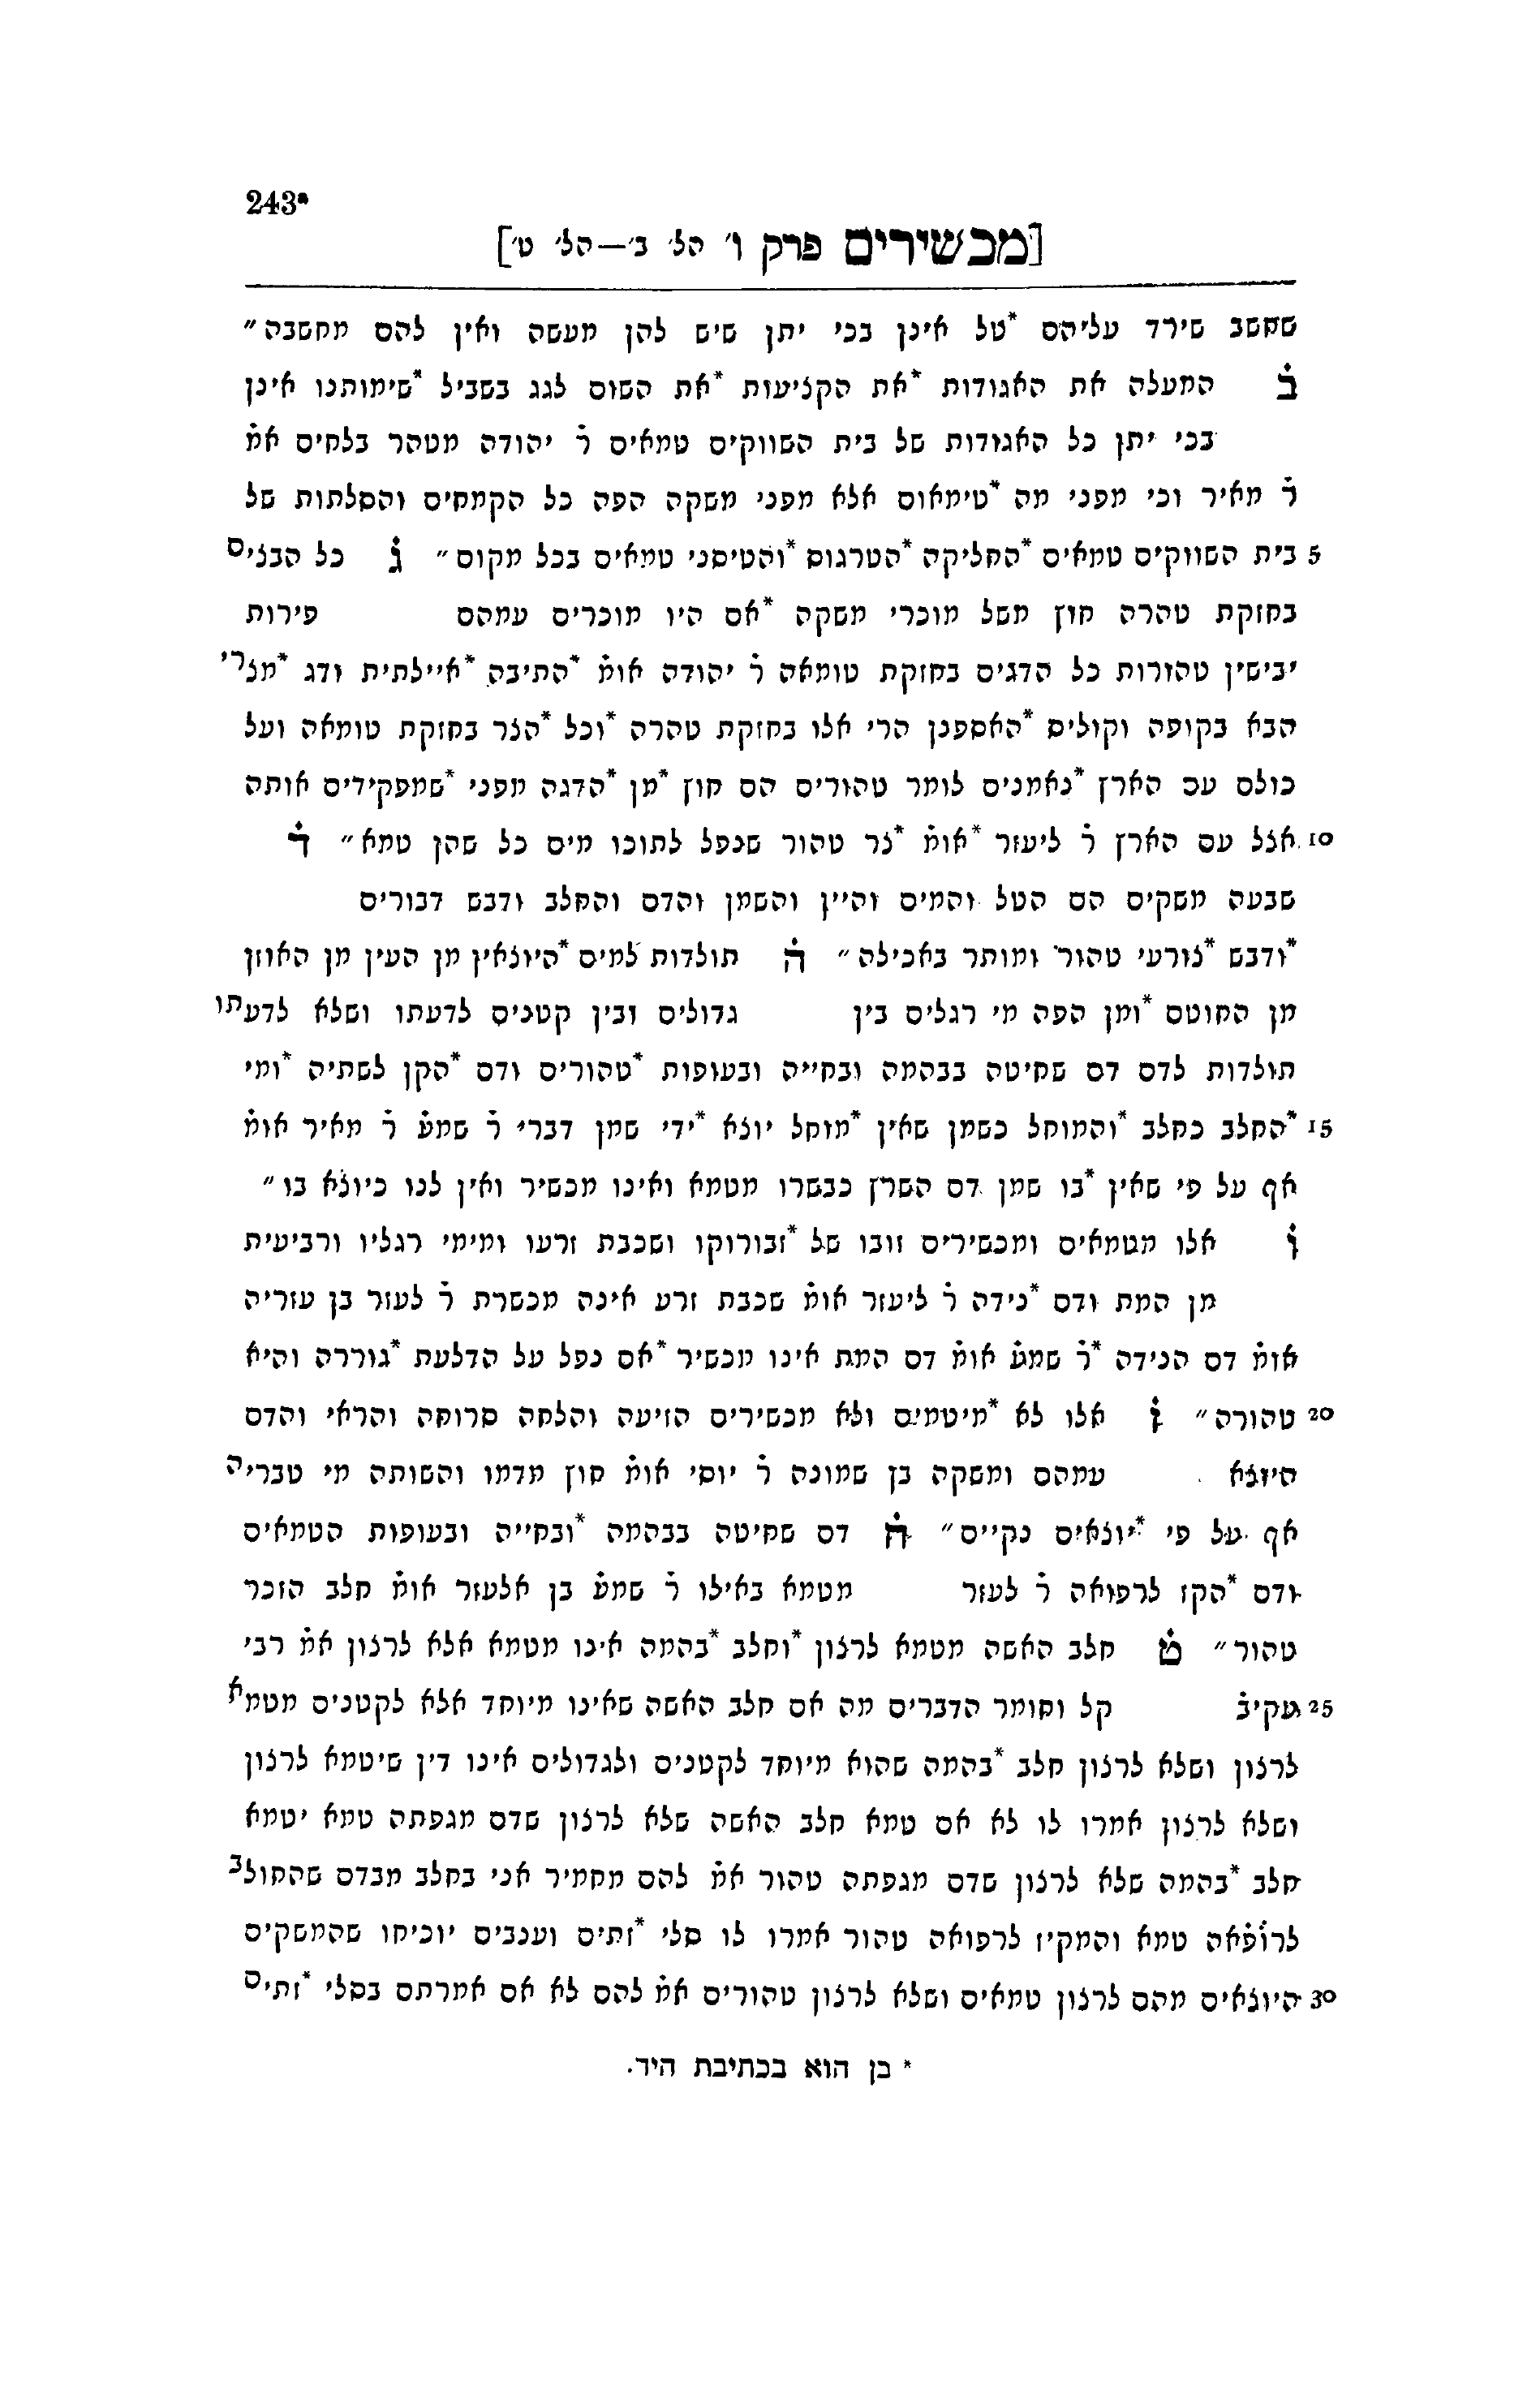 243a
[מכשירים פרק ו׳ הל׳ ב׳—הל׳ ט׳]
שחשב שירד עליהם *טל אינן בכי יתן שיש להן מעשה ואין להם מחשבה״
ב המעלה את האגודות *את הקציעות *את השום לגג בשביל *שימותנו אינן
בכי יתן כל האגודות של בית השווקים טמאים ר׳ יהודה מטהר בלחים אמ׳
ר׳ מאיר וכי מפני מה *טימאום אלא מפני משקה הפה כל הקמחים והסלתות של
5 בית השווקים טמאים *החליקה *הטרגוס *והטיסני טמאים בכל מקום״ ג כל הבצים
בחזקת טהרה חוץ משל מוכרי משקה *אם היו מוכרים עמהם פירות
יבישין טהורות כל הדגים בחזקת טומאה ר׳ יהודה אומ׳ *התיבה *איילתית ודג *מצרי
הבא בקופה וקולים *האספנן הרי אלו בחזקת טהרה *וכל *הצר בחזקת טומאה ועל
כולם עם הארץ *נאמנים לומר טהורים הם חוץ *מן *הדגה מפני *שמפקידים אותה
10 אצל עם הארץ ר׳ ליעזר *אומ׳ *צר טהור שנפל לתוכו מים כל שהן טמא״ ד
שבעה משקים הם הטל והמים והיין והשמן והדם והחלב ודבש דבורים
*ודבש *צורעי טהור ומותר באכילה״ ה תולדות למים *היוצאין מן העין מן האוזן
מן החוטם *ומן הפה מי רגלים בין גדולים ובין קטנים לדעתו ושלא לדעתו
תולדות לדם דם שחיטה בבהמה ובחייה ובעופות *טהורים ודם *הקן לשתיה *ומי
15 *החלב כחלב *והמוחל כשמן שאין *מוחל יוצא *ידי שמן דברי ר׳ שמע׳ ר׳ מאיר אומ׳
אף על פי שאין *בו שמן דם השרץ כבשרו מטמא ואינו מכשיר ואין לנו כיוצא בו״
ו אלו מטמאים ומכשירים זובו של *זבורוקו ושכבת זרעו ומימי רגליו ורביעית
מן המת ודם *נידה ר׳ ליעזר אומ׳ שכבת זרע אינה מכשרת ר׳ לעזר בן עזריה
אומ׳ דם הנידה *ר׳ שמע׳ אומ׳ דם המת אינו מכשיר *אם נפל על הדלעת *גוררה והיא
20 טהורה״ ז אלו לא *מיטמים ולא מכשירים הזיעה והלחה סרוחה והראי והדם
היוצא עמהם ומשקה בן שמונה ר׳ יוסי אומ׳ חוץ מדמו והשותה מי טבריה
אף על פי *יוצאים נקיים״ ח דם שחיטה בבהמה *ובחייה ובעופות הטמאים
ודם *הקז לרפואה ר׳ לעזר מטמא באילו ר׳ שמע׳ בן אלעזר אומ׳ חלב הזכר
טהור״ ט חלב האשה מטמא לרצון *וחלב *בהמה אינו מטמא אלא לרצון אמ׳ רבי
25 עקיב׳ קל וחומר הדברים מה אם חלב האשה שאינו מיוחד אלא לקטנים מטמא
לרצון ושלא לרצון חלב *בהמה שהוא מיוחד לקטנים ולגדולים אינו דין שיטמא לרצון
ושלא לרצון אמרו לו לא אם טמא חלב האשה שלא לרצון שדם מגפתה טמא יטמא
חלב *בהמה שלא לרצון שדם מגפתה טהור אמ׳ להם מחמיר אני בחלב מבדם שהחולב
לרופאה טמא והמקיז לרפואה טהור אמרו לו סלי *זתים וענבים יוכיחו שהמשקים
30 היוצאים מהם לרצון טמאים ושלא לרצון טהורים אמ׳ להם לא אם אמרתם בסלי *זתים
* כן הוא בכתיבת היד.